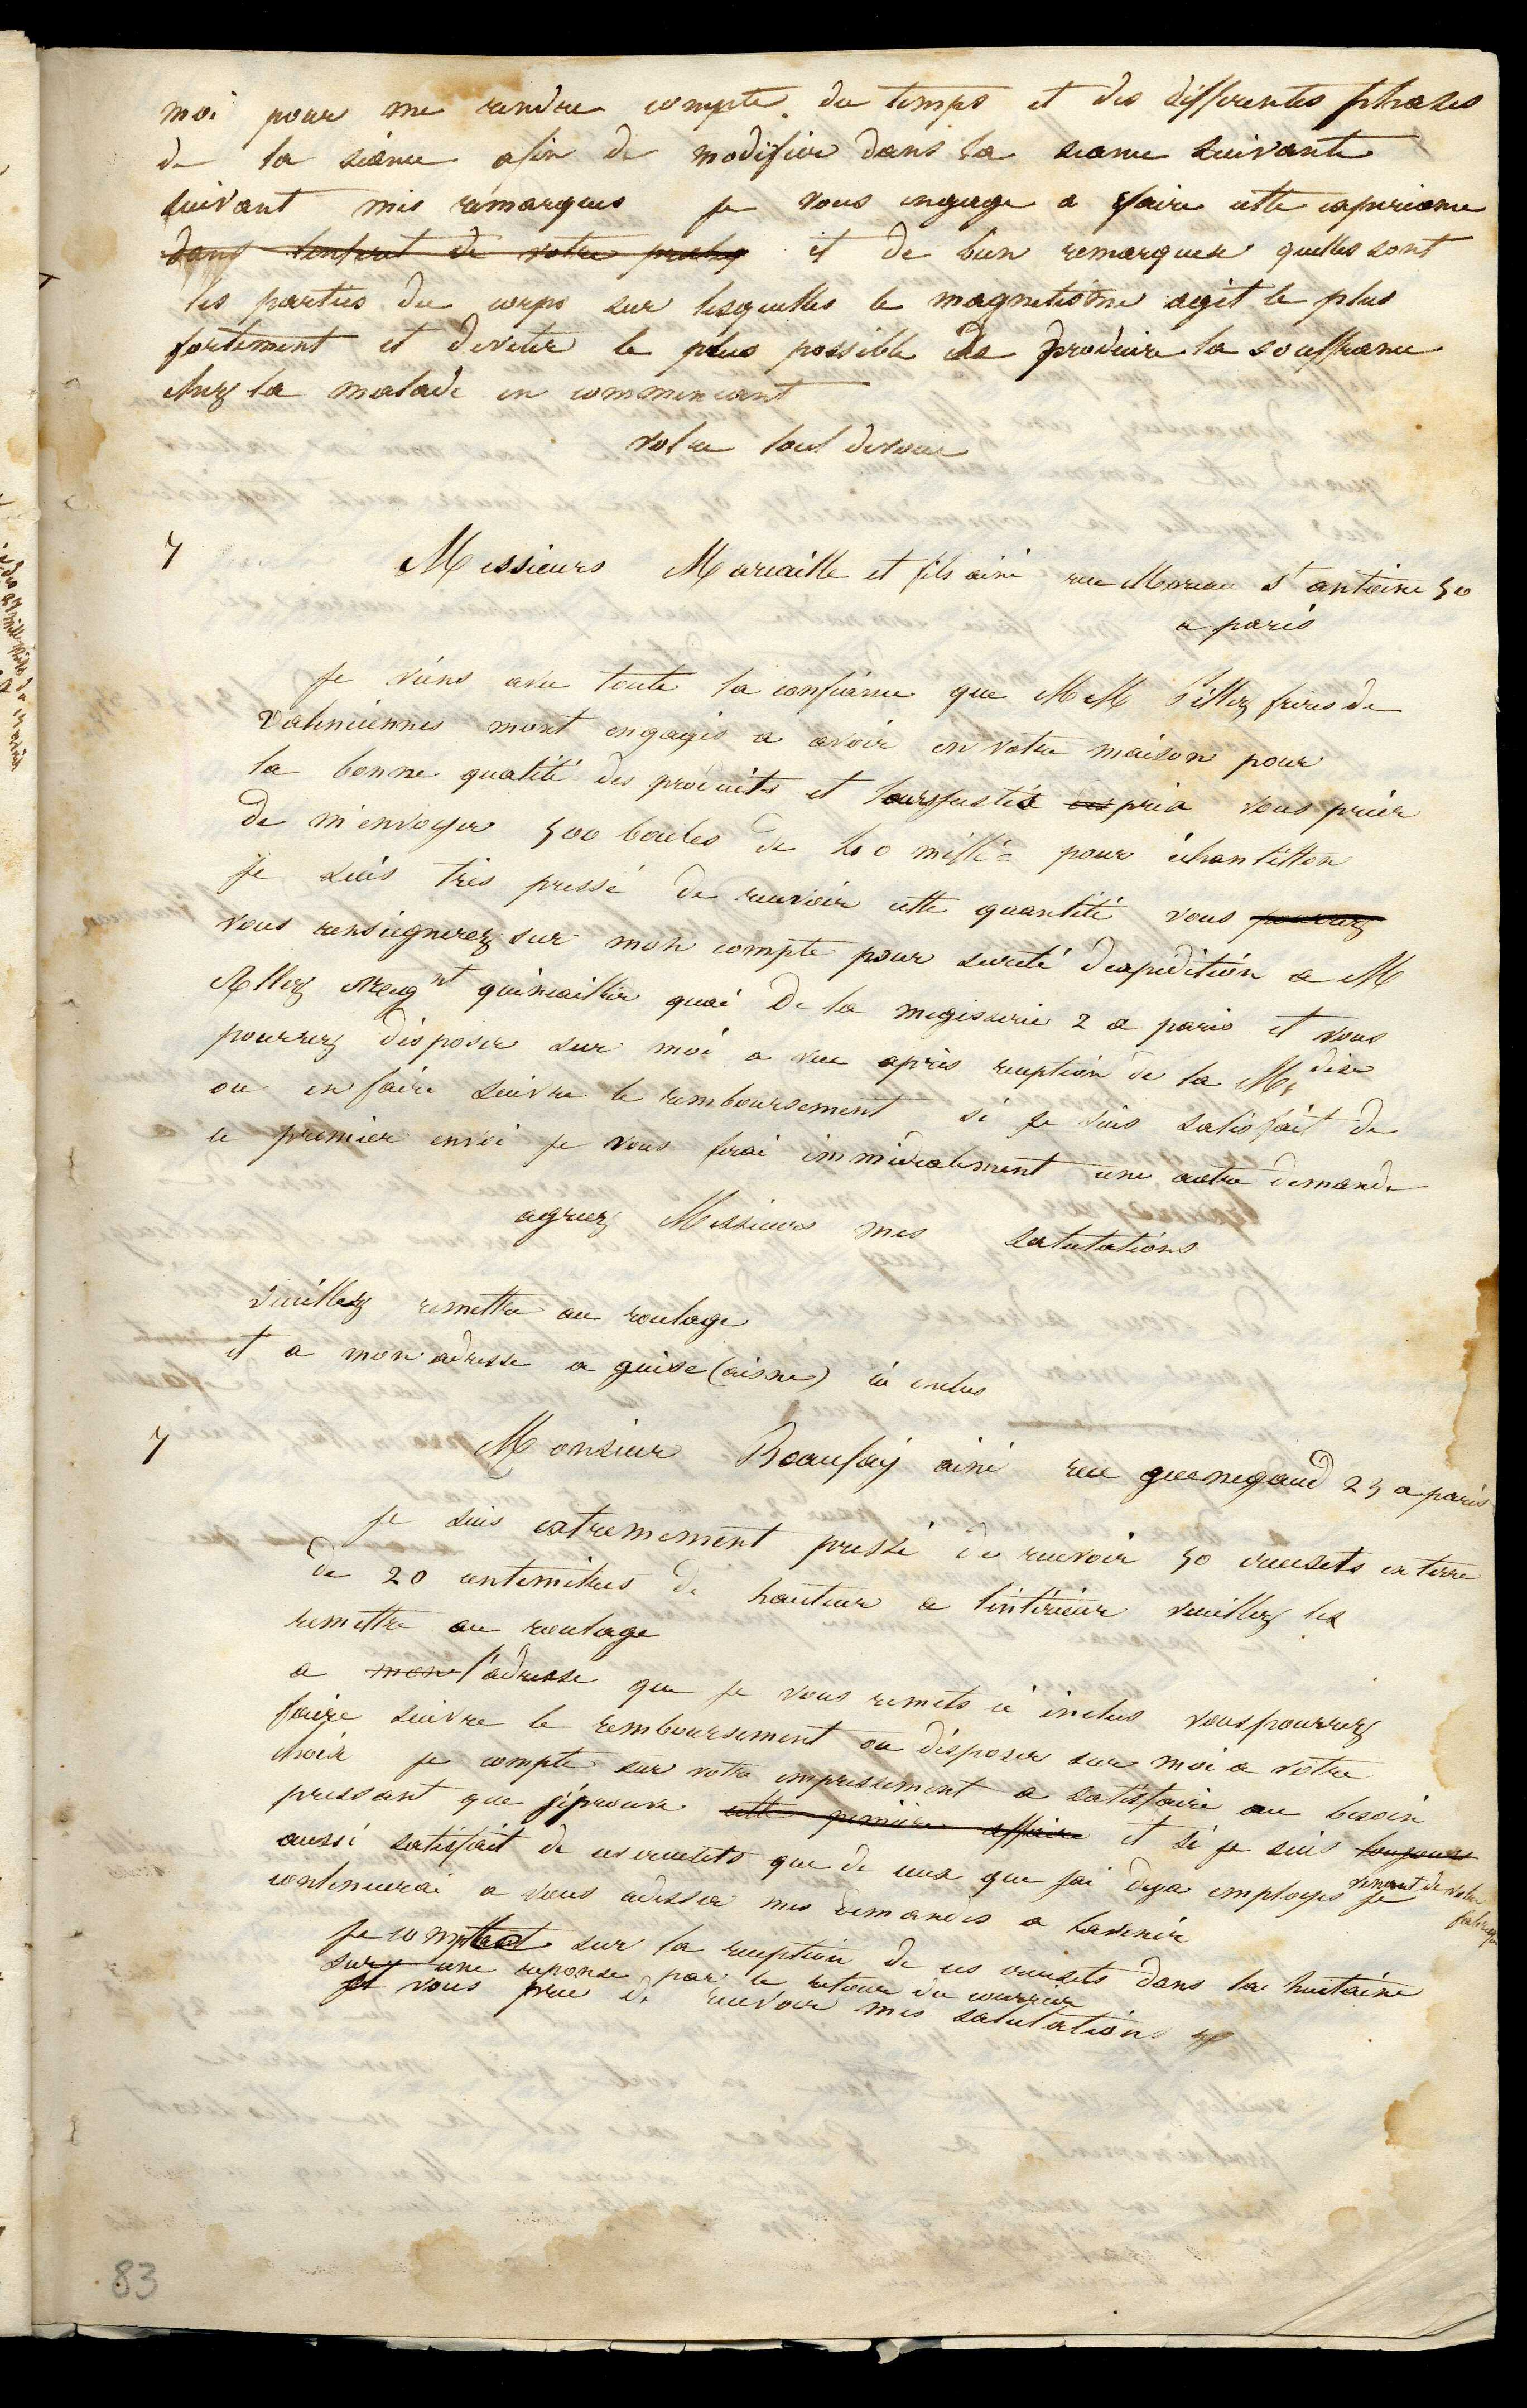 moi pour me rendre compte du temps et des differentes phases
de la séance afin de modifier dans la seance suivante
suivant mes remarques je vous engage a faire cette experience
dans linteret de votre et de bien remarquer quelles sont
les parties du corps sur lesquelles le magnetisme agit le plus
fortement et deviter le plus possible de produire la souffrance
chez la malade en commencant
votre tout devoué
7 Messieurs Mareaille et fils ainé rue Moreau St antoine 50
a paris
Je viens avec toute la confiance que MM Pillez frères de
Valenciennes mont engagés a avoir en votre maison pour
la bonne qualité des produits et prix vous prier
de m'envoyer 500 boules de 40 mille pour échantillon
Je suis très pressé de recevoir cette quantité vous pourrez
vous renseignerez sur mon compte pour sureté dexpédition a M
Allez quincaillier quai de la megisserie 2 a paris et vous
pourrez disposer sur moi a vue après reception de la Mdise
ou en faire suivre le remboursement si je suis satisfait de
ce premier envoi je vous ferai immédiatement une autre demande
agreez Messieurs mes salutations
veuillez remettre au roulage
et a mon adresse a guise (aisne) ci inclus
7 Monsieur Beaufay ainé rue guenegaud 25 a paris
Je suis extremement pressé de recevoir 50 creusets en terre
de 20 centimètres de hauteur a lintérieur veuillez les
remettre au roulage
a mon l'adresse que je vous remets ci inclus vous pourrez
faire suivre le remboursement ou disposer sur moi a votre
choix je compte sur votre empressement a satisfaire au besoin
pressant que jéprouve cette première affaire et si je suis toujours
aussi satisfait de ces creusets que de ceux que jai deja employés venant de votre fabrique je
continuerai a vous adresser mes demandes a lavenir
Je compte sur la reception de ces creusets dans la huitaine
sur une reponse par le retour du courrier
et vous prie de recevoir mes salutations
83